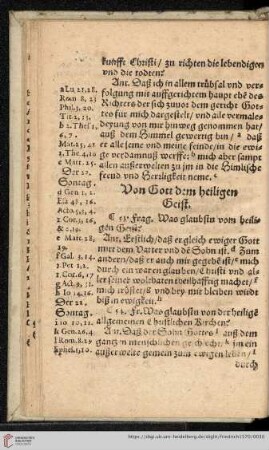 kunfft Christi / zu richten die lebendigen
vnd die todten?
Ant. Daß ich in allem trübsal vnd ver-
folgung mit auffgerichtem haupt ebē des
Richters der sich zuuor dem gericht Got-
tes für mich dargestelt / vnd alle vermale-
deyung von mir hinweg genommen hat /
auß dem Himmel gewertig bin / daß
er alle seine vnd meine feinde / in die ewi-
ge verdamnuß werffe: mich aber sampt
allen außerwelten zu jm in die Himlische
freud vnd Herrligkeit neme.
Von Gott dem heiligen
Geist.
53. Frag. Was glaubstu vom heili-
gen Geist?
Ant. Erstlich / daß er gleich ewiger Gott
mit dem Vatter vnd dē Sohn ist. Zum
andern / daß er auch mir gegebē ist / mich
durch ein waren glauben / Christi vnd al-
ler seiner wolthaten theilhafftig machet /
mich tröstet vnd bey mir bleiben wirdt
biß in ewigkeit.
54. Fr. Was glaubstu von der heiligē
allgemeinen Christlichen Kirchen?
Ant. Daß der Sohn Gottes auß dem
gantzen menschlichen geschlecht / jm ein
außerwelte gemein zum ewigen leben /
durch
a Luc. 21.28.
Rom. 8. 23
Phil. 3. 20.
Tit. 2. 13.
b 2. Thes. 1.
6. 7.
Mat. 25. 41
1. The. 4. 16
c Matt. 25
Der 20.
Sontag.
a Gen. 1. 2.
Esa. 48. 16.
1. Cor. 3. 16.
Matt. 28.
19.
Gal. 3. 14.
1. Pet. 1. 2.
1. Cor. 6. 17.
Act. 9. 31.
Io. 14. 16.
Der 21.
Sontag.
Io. 10. 11.
b Gen. 26. 4.
Ephes. 1. 10.
https://digi.ub.uni-heidelberg.de/diglit/friedrich1570/0036